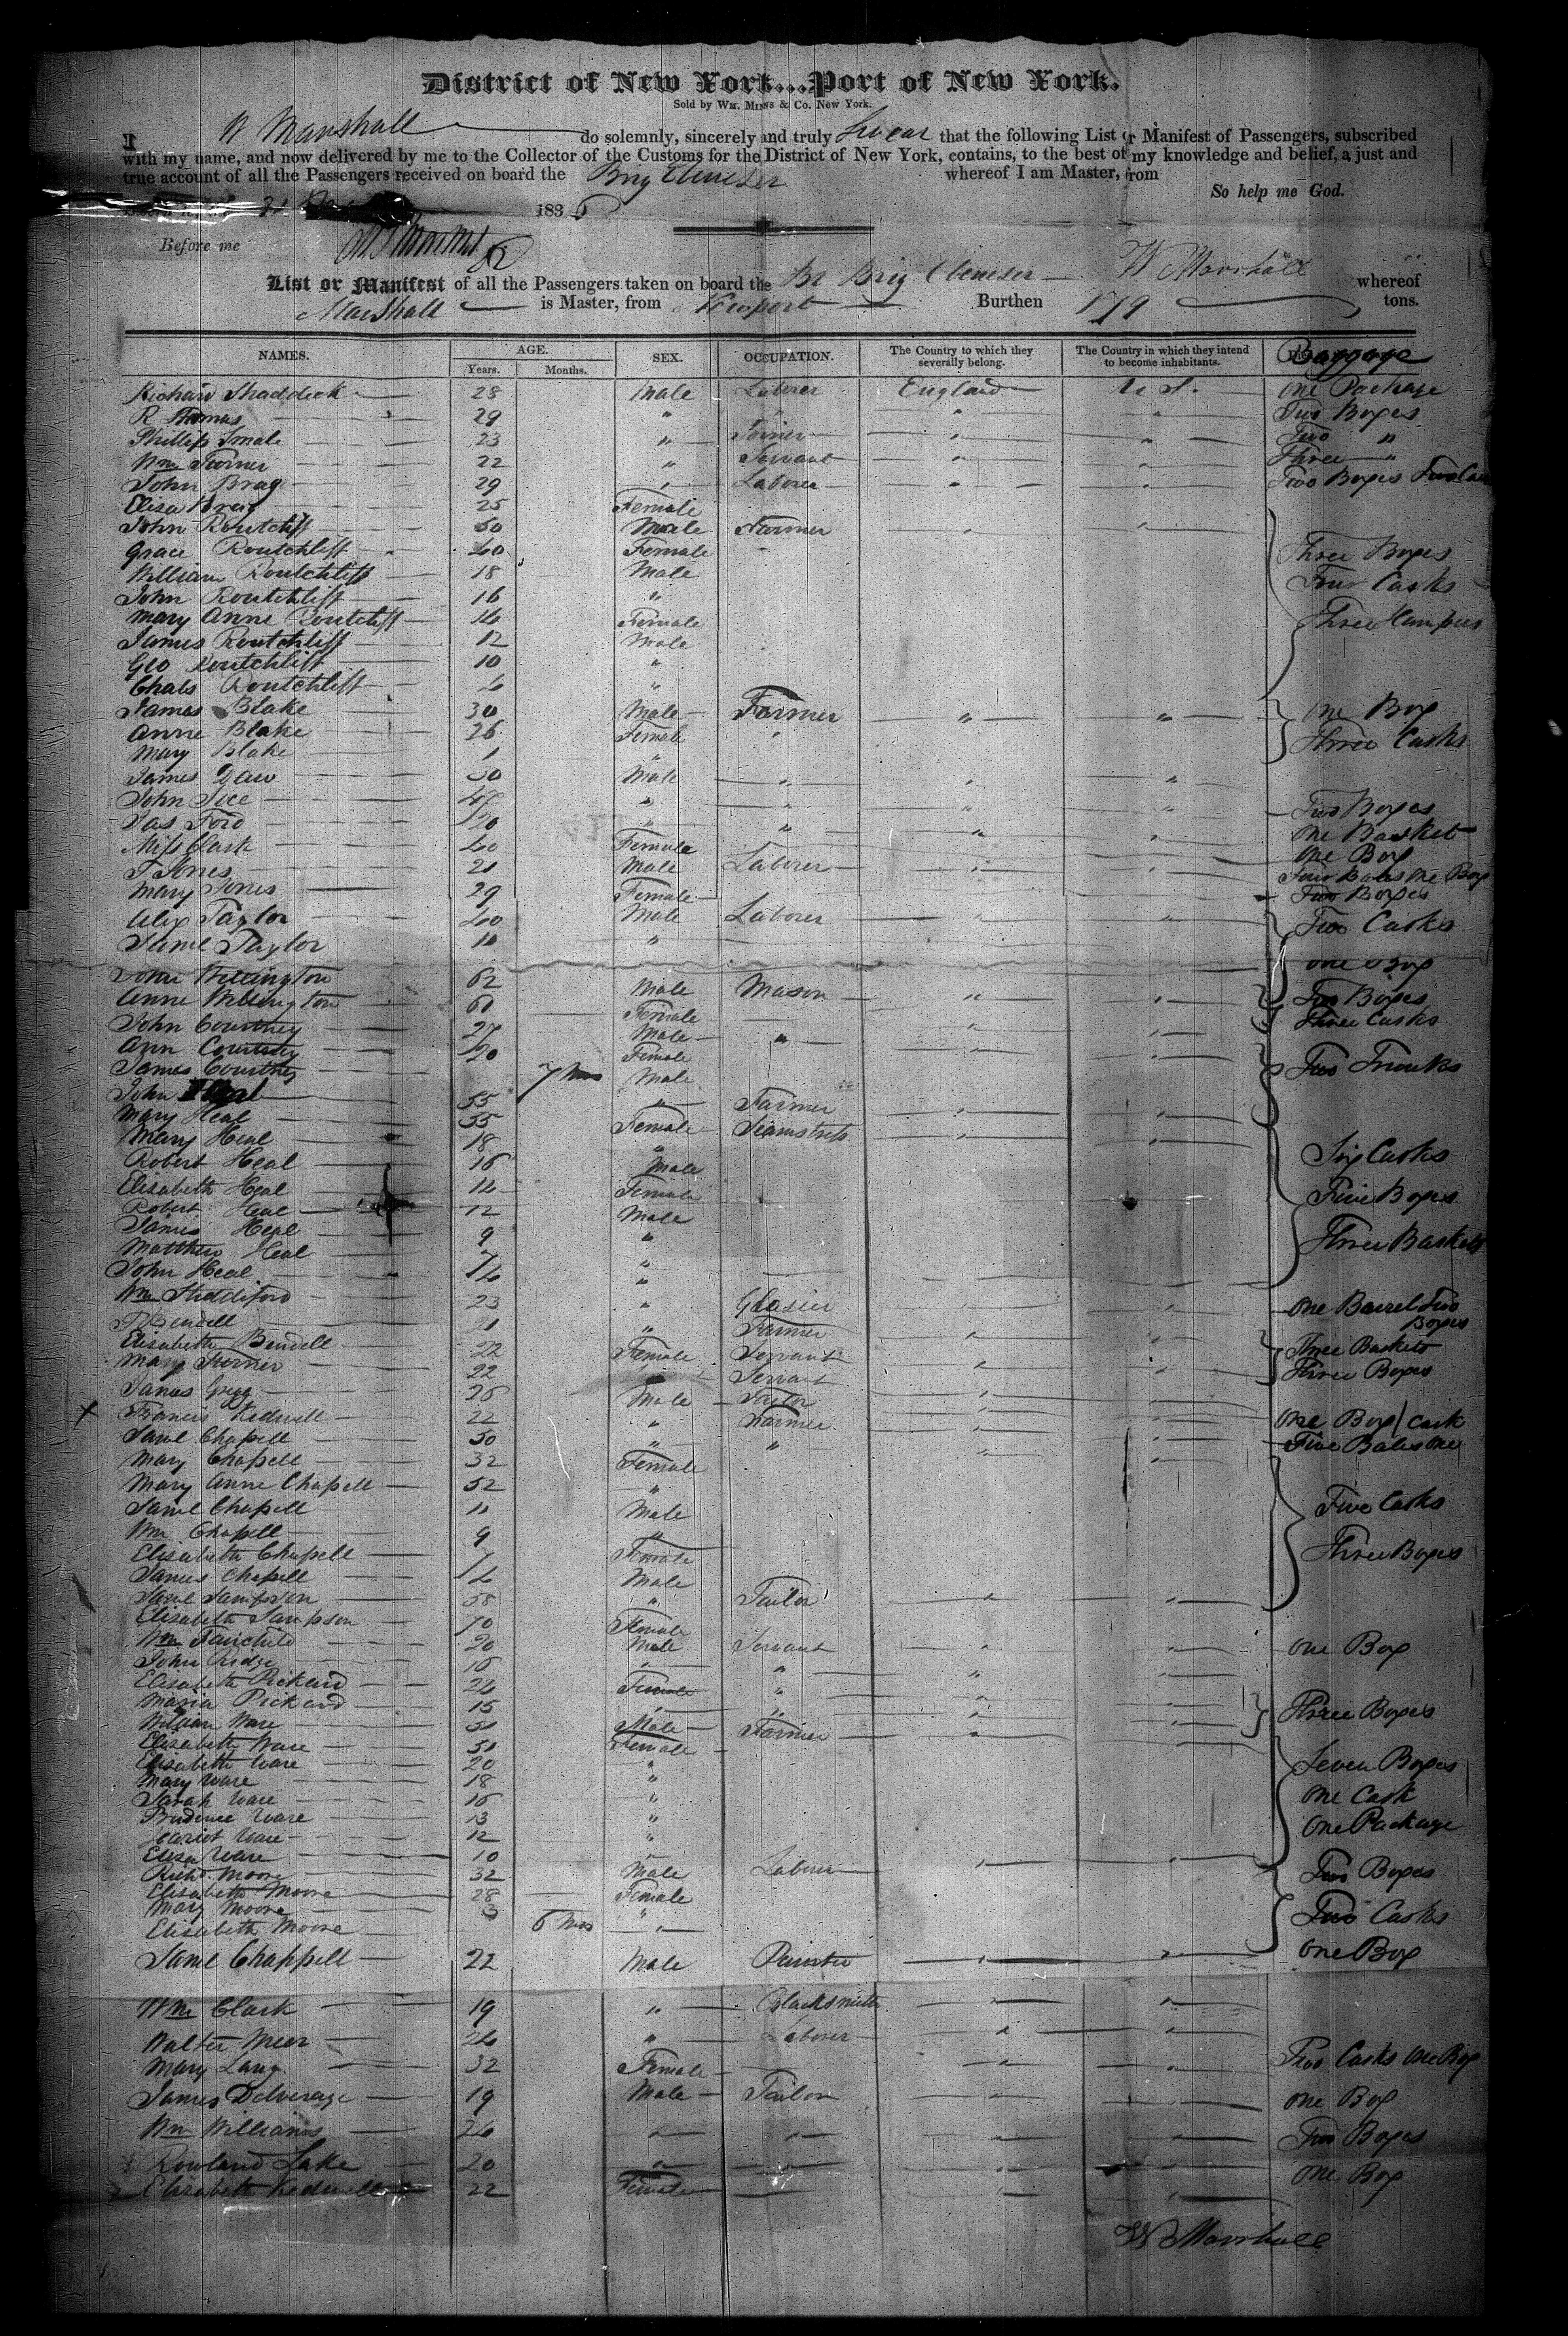 District of New York...Port of New York.
Sold by WM. MINNS & Co. New York.
I W Marshall do solemnly, sincerely and truly Swear that the following List or Manifest of Passengers, subscribed
with my name, and now delivered by me to the Collector of the Customs for the District of New York, contains, to the best of my knowledge and belief, a just and
true account of all the Passengers received on board the Brig Ebenezer whereof I am Master, from
So help me God.
183
Before me
List or Manifest of all the Passengers taken on board the Br Brig Ebenezer W Marshall whereof
Marshall is Master, from Newport Burthen 179 tons.
NAMES. AGE. SEX. OCCUPATION. The Country to which they severally belong. The Country in which they intend to become inhabitants. Baggage
Years. Months.
Richard Shaddick 28 Male Laborer England U S. One Package
R Thomas 29 " " " " Two Boxes
Phillip Smale 23 " Joiner " " Two "
Wm Turner 22 " Servant " " Three "
John Bray 29 " Laborer " " Two Boxes
Elisa Bray 25 Female
John Routchliff 50 Male Farmer " "
Grace Routchliff 40 Female Three Boxes
William Routchliff 18 Male Four Casks
John Routchliff 16 "
Mary Anne Routchliff 14 Female Three Hampers
James Routchliff 12 Male
Geo Routchliff 10 "
Chals Routchliff 4 "
James Blake 30 Male Farmer " " One Box
Anne Blake 26 Female " Three Casks
Mary Blake 1 "
James Daw 30 Male " "
John " " " " Two Boxes
Jas Ford 20 " " " " One Basket
Miss Clark 40 Female One Box
T Jones 21 Male Laborer " " Four Bales One Box
Mary Jones 29 Female Two Boxes
Alex Taylor 40 Male Laborer " " Two Casks
Saml Taylor 11 " One Box
John Willington 62 Male Mason " " Two Boxes
Anne Willington 61 Female Three Casks
John Courtney 27 Male " " "
Ann Courtney 20 Female Two Trunks
James Courtney 7 Mos Male
John Heal 55 " Farmer " "
Mary Heal 55 Female Seamstress " "
Mary Heal 18 " Six Casks
Robert Heal 16 Male
Elisabeth Heal 14 Female Five Boxes
Robert Heal 12 Male
James Heal 9 " Three Baskets
Matthew Heal 7 "
John Heal 4 "
Wm 23 " Glasier " " One Barrel Two Boxes
Bendell 21 " Farmer " "
Elisabeth Bendell 22 Female Servant Three Baskets
Mary Turner 22 Servant " " Three Boxes
James Gregg 26 Male Taylor " "
X Francis Kedwell 22 " Farmer " " One Box 1 Cask
Saml Chapell 50 " " " " Five Bales One
Mary Chapell 32 Female
Mary Anne Chapell 52 "
Saml Chapell 11 Male Five Casks
Wm Chapell 9 "
Elisabeth Chapell 7 Female Three Boxes
James Chapell 4 Male
Saml Sampson 58 " Tailor " "
Elisabeth Sampson 70 Female
Wm Fairchild 20 Male Servant " " One Box
John Ridge 16 " " " "
Elisabeth Pickard 24 Female " " "
Maria Pickard 15 " " " " Three Boxes
William Ware 51 Male Farmer " "
Elisabeth Ware 51 Female
Elisabeth Ware 20 " Seven Boxes
Mary Ware 18 "
Sarah Ware 16 " One Cask
Prudence Ware 13 "
Hariot Ware 12 " One Package
Elisa Ware 10 "
Richd. Moore 32 Male Laborer " " Two Boxes
Elisabeth Moore 28 Female
Mary Moore 3 " Two Casks
Elisabeth Moore 6 Mos "
Saml Chappell 22 Male Painter " " One Box
Wm Clark 19 " Blacksmith " "
Walter Meer 24 " Laborer " "
Mary Lang 32 Female " " Two Casks One Box
James Delverage 19 Male Tailor " " One Box
Wm Williams 24 " " " " Two Boxes
Rowland Lake 20 " " " " One Box
Elisabeth Kedwell 22 Female " "
W Marshall